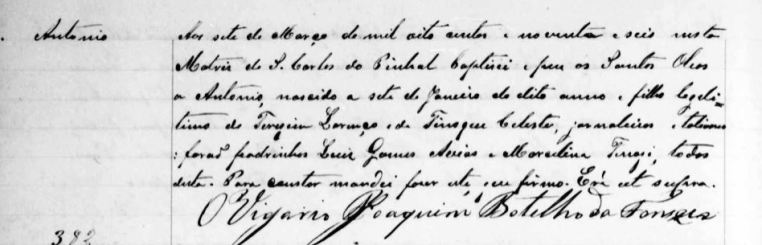 Antonio
Aos sete de Março de mil oito centos e noventa e seis nesta
Matriz de S. Carlos do Pinhal baptisei e puz os Santos Oleos
a Antonio, nascido a sete de Janeiro do dito anno e filho legi=
timo de Lourenço e de Celeste, jornaleiros italianos
: forão padrinhos Luiz Gomes e Marcelina todos
desta. Para constar mandei fazer este que firmo. Era ut supra.
O Vigario Joaquim Botelho da Fonseca
382